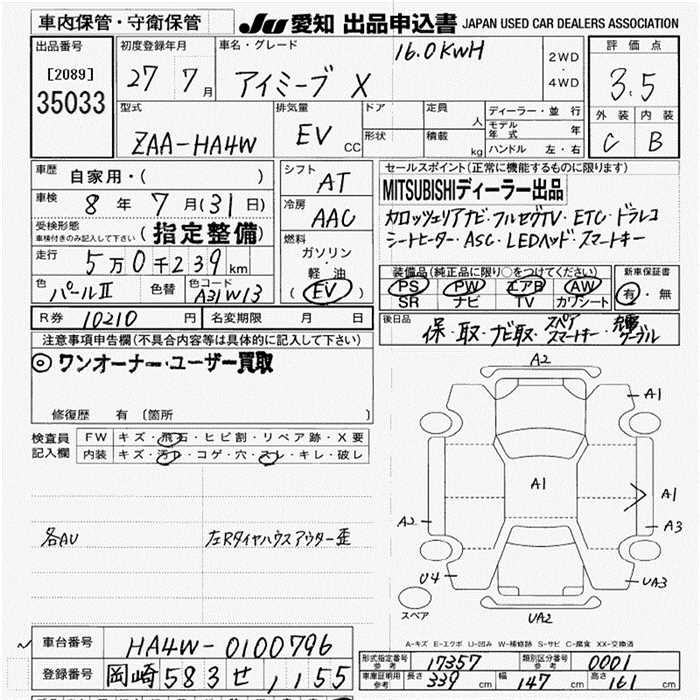 車内保管・守衛保管 JU 愛知 出品申込書 JAPAN USED CAR DEALERS ASSOCIATION
出品番号
[2089]
35033
初度登録年月 27 7月
車名・グレード アイミーブ X 16.0KWH
2WD・4WD
評価点
3.5
外装 内装
C B
型式 ZAA-HA4W
排気量 EV CC
ドア 定員 人
形状 積載 kg
ディーラー・並行
モデル年式 年
ハンドル 左・右
車歴 自家用・( )
車検 8年 7月(31日)
受検形態
車検付きのみ記入して下さい (指定整備)
走行 5万0千239km
色 パールII 色替 色コード A31W13
シフト AT
冷房 AAC
燃料
ガソリン・軽油
(EV)
R券 10210円 名変期限 月 日
セールスポイント(正常に機能するものに限ります)
MITSUBISHIディーラー出品
カロッツェリアナビ・フルセグTV・ETC・ドラレコ
シートヒーター・ASC・LEDヘッド・スマートキー
装備品(純正品に限り○をつけてください) 新車保証書
PS PW エアB AW 有・無
SR ナビ TV カワシート
後日品 保・取・ナビ取・スペアスマートキー・充電ケーブル
注意事項申告欄(不具合内容等は具体的に記入して下さい)
◎ワンオーナー・ユーザー買取
修復歴 有 〔箇所 〕
検査員記入欄
FW キズ・飛石・ヒビ割・リペア跡・X要
内装 キズ・汚れ・コゲ・穴・スレ・キレ・破レ
各AU 左Rタイヤハウスアウター歪
A2
A1
A1
A1
A2
A3
U4
UA3
UA2
スペア
A-キズ E-エクボ U-凹み W-補修跡 S-サビ C-腐食 XX-交換済
車台番号 HA4W-0100796
登録番号 岡崎583せ1155
形式指定番号参考 17357 類別区分番号参考 0001
車庫証明用参考 長さ 339cm 幅 147cm 高さ 161cm